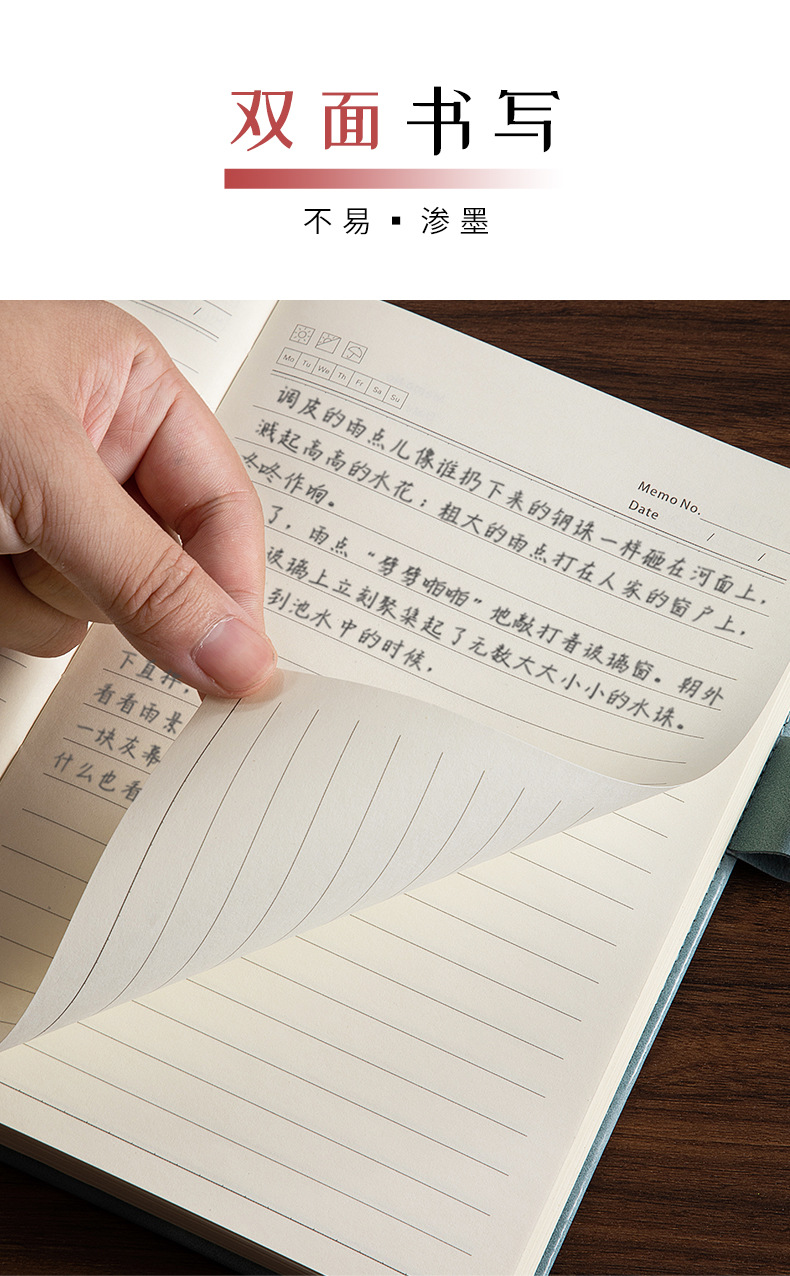 双面书写
不易▪渗墨
/
Mo Tu We Th Fr Sa Su
Memo No.
Date / /
调皮的雨点儿像谁扔下来的钢珠一样砸在河面上，
溅起高高的水花；粗大的雨点打在人家的窗户上，
咚咚作响。
了，雨点“劈劈啪啪”地敲打着玻璃窗。朝外
玻璃上立刻聚集起了无数大大小小的水珠。
到池水中的时候，
下直摔，
看看雨景
一块灰幕
什么也看